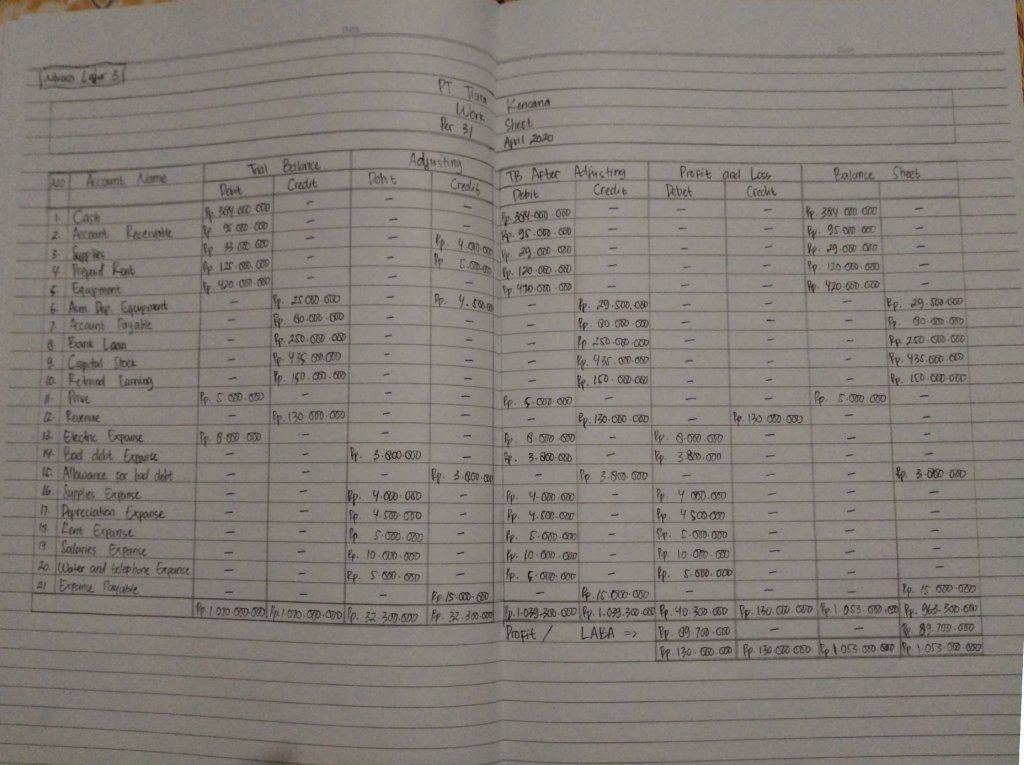 Date
Date
PT Tiara Kencana
Work Sheet
Per 31 April 2020
No Account Name Trial Ballance Adjusting TB After Adjusting Profit and Loss Balance Sheet
Debit Credit Debit Credit Debit Credit Debet Credit
1. Cash Rp. 384.000.000 - - - Rp. 384.000.000 - - - Rp. 384.000.000 -
2. Account Receivable Rp. 95.000.000 - - - Rp. 95.000.000 - - - Rp. 95.000.000 -
3. Supplies Rp. 33.000.000 - - Rp. 4.000.000 Rp. 29.000.000 - - - Rp. 29.000.000 -
4. Prepaid Rent Rp. 125.000.000 - - Rp. 5.000.000 Rp. 120.000.000 - - - Rp. 120.000.000 -
5. Equipment Rp. 420.000.000 - - - Rp. 420.000.000 - - - Rp. 420.000.000 -
6. Acm Dep. Equipment - Rp. 25.000.000 - Rp. 4.500.000 - Rp. 29.500.000 - - - Rp. 29.500.000
7. Account Payable - Rp. 80.000.000 - - - Rp. 80.000.000 - - - Rp. 80.000.000
8. Bank Loan - Rp. 250.000.000 - - - Rp. 250.000.000 - - - Rp. 250.000.000
9. Capital Stock - Rp. 435.000.000 - - - Rp. 435.000.000 - - - Rp. 435.000.000
10. Retained Earning - Rp. 150.000.000 - - - Rp. 150.000.000 - - - Rp. 150.000.000
11. Prive Rp. 5.000.000 - - - Rp. 5.000.000 - - - Rp. 5.000.000 -
12. Revenue - Rp. 130.000.000 - - - Rp. 130.000.000 - Rp. 130.000.000 - -
13. Electric Expense Rp. 8.000.000 - - - Rp. 8.000.000 - Rp. 8.000.000 - - -
14. Bad debt Expense - - Rp. 3.800.000 - Rp. 3.800.000 - Rp. 3.800.000 - - -
15. Allowance for bad debt - - - Rp. 3.800.000 - Rp. 3.800.000 - - - Rp. 3.800.000
16. Supplies Expense - - Rp. 4.000.000 - Rp. 4.000.000 - Rp. 4.000.000 - - -
17. Depreciation Expense - - Rp. 4.500.000 - Rp. 4.500.000 - Rp. 4.500.000 - - -
18. Rent Expense - - Rp. 5.000.000 - Rp. 5.000.000 - Rp. 5.000.000 - - -
19. Salaries Expense - - Rp. 10.000.000 - Rp. 10.000.000 - Rp. 10.000.000 - - -
20. Water and telephone Expense - - Rp. 5.000.000 - Rp. 5.000.000 - Rp. 5.000.000 - - -
21. Expense Payable - - - Rp. 15.000.000 - Rp. 15.000.000 - - - Rp. 15.000.000
Rp. 1.070.000.000 Rp. 1.070.000.000 Rp. 32.300.000 Rp. 32.300.000 Rp. 1.039.300.000 Rp. 1.039.300.000 Rp. 40.300.000 Rp. 130.000.000 Rp. 1.053.000.000 Rp. 963.300.000
Profit / LABA => Rp. 89.700.000 - - Rp. 89.700.000
Rp. 130.000.000 Rp. 130.000.000 Rp. 1.053.000.000 Rp. 1.053.000.000